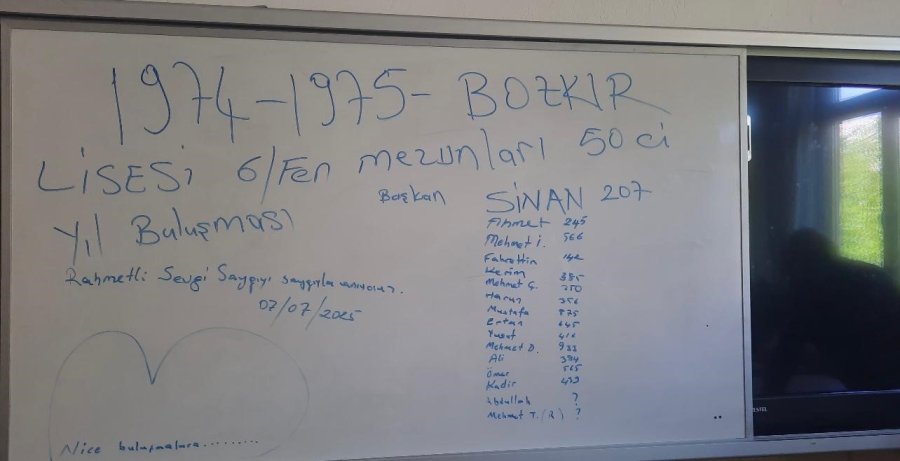 1974-1975- BOZKIR
LİSESİ 6/Fen mezunları 50 ci
Yıl Buluşması
Rahmetli Sevgi Saygıyı saygıyla anıyoruz.
07/07/2025
Başkan SİNAN 207
Ahmet 245
Mehmet İ. 566
Fahrettin 142
Kerim 385
Mehmet Ç. 350
Harun 356
Mustafa 875
Ertan 645
Yusuf 416
Mehmet D. 933
Ali 394
Ömer 565
Kadir 439
Abdullah ?
Mehmet T. (R) ?
Nice buluşmalara.........
VESTEL